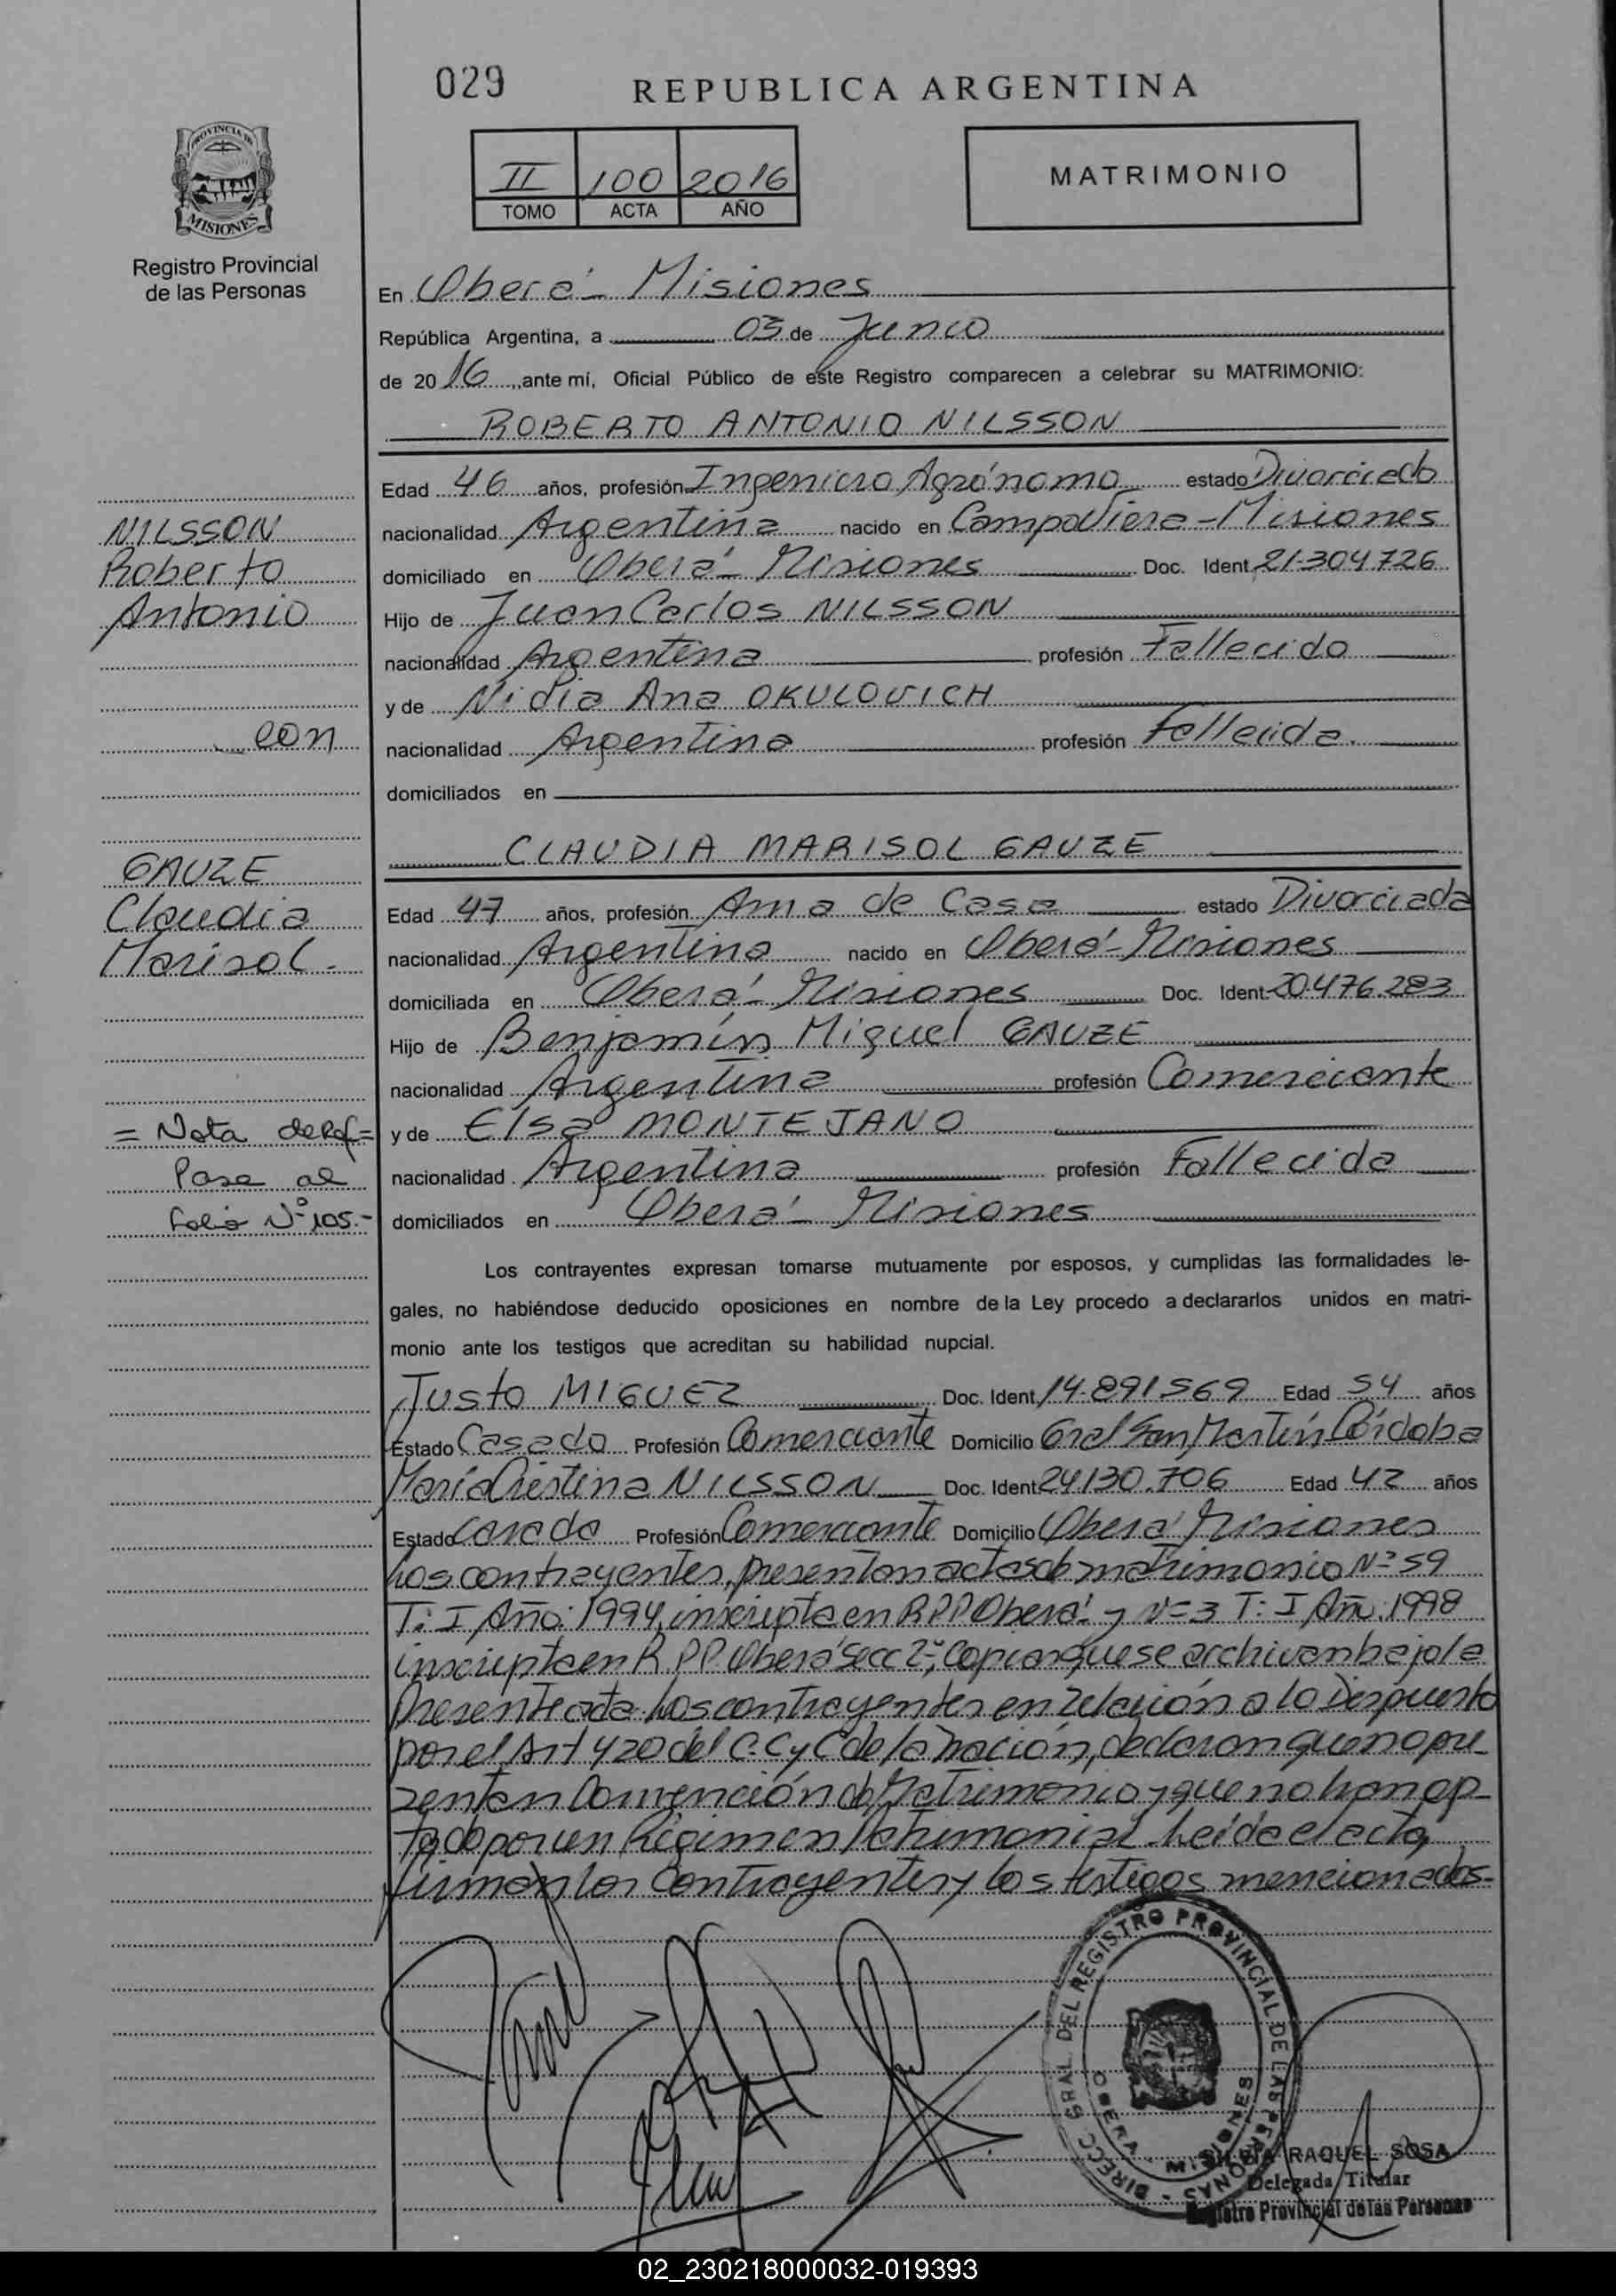 029
REPUBLICA ARGENTINA
II 100 2016
TOMO ACTA AÑO
MATRIMONIO
PROVINCIA DE
MISIONES
Registro Provincial
de las Personas
En Oberá - Misiones
República Argentina, a 03 de Junio
de 20 16, ante mí, Oficial Público de este Registro comparecen a celebrar su MATRIMONIO:
ROBERTO ANTONIO NILSSON
Edad 46 años, profesión Ingeniero Agrónomo estado Divorciado
nacionalidad Argentina nacido en Campo Viera - Misiones
domiciliado en Oberá - Misiones Doc. Ident. 21.304.726
Hijo de Juan Carlos NILSSON
nacionalidad Argentina profesión Fallecido
y de Nidia Ana OKULOVICH
nacionalidad Argentina profesión Fallecida.
domiciliados en
CLAUDIA MARISOL GAUZE
Edad 47 años, profesión Ama de Casa estado Divorciada
nacionalidad Argentina nacido en Oberá - Misiones
domiciliada en Oberá - Misiones Doc. Ident. 20.476.283
Hijo de Benjamín Miguel GAUZE
nacionalidad Argentina profesión Comerciante
y de Elsa MONTEJANO
nacionalidad Argentina profesión Fallecida
domiciliados en Oberá - Misiones
NILSSON
Roberto
Antonio
con
GAUZE
Claudia
Marisol.-
= Nota de Ref =
Pasa al
Folio Nº 105.-
Los contrayentes expresan tomarse mutuamente por esposos, y cumplidas las formalidades le-
gales, no habiéndose deducido oposiciones en nombre de la Ley procedo a declararlos unidos en matri-
monio ante los testigos que acreditan su habilidad nupcial.
Justo MIGUEZ Doc. Ident. 14.891.569 Edad 54 años
Estado Casado Profesión Comerciante Domicilio Gral San Martín Córdoba
María Cristina NILSSON Doc. Ident. 24.130.706 Edad 42 años
Estado Casada Profesión Comerciante Domicilio Oberá Misiones
Los contrayentes, presentan actas de matrimonio Nº 59
T: I Año: 1994, inscripta en R.P.P Oberá y Nº 3 T: I Año: 1998
inscripta en R.P.P Oberá Secc 2º, copias que se archivan bajo la
Presente acta. Los contrayentes en relación a lo Dispuesto
por el Art 420 del C.C y C de la Nación, declaran que no pre-
sentan Convención de Matrimonio y que no han op-
tado por un Régimen Patrimonial. Leída el acta,
firman los contrayentes y los testigos mencionados.-
DIRECC. GRAL. DEL REGISTRO PROVINCIAL DE LAS PERSONAS
OBERA - MISIONES
SILVIA RAQUEL SOSA
Delegada Titular
Registro Provincial de las Personas
02_230218000032-019393